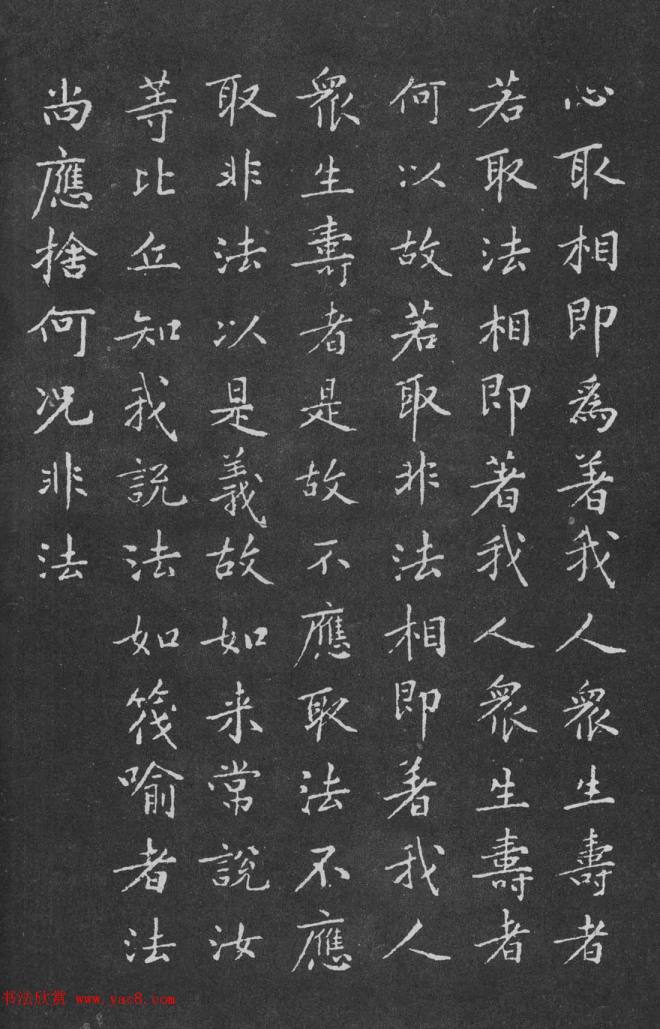 心取相即為著我人衆生壽者
若取法相即著我人衆生壽者
何以故若取非法相即著我人
衆生壽者是故不應取法不應
取非法以是義故如来常說汝
等比丘知我說法如筏喻者法
尚應捨何况非法
书法欣赏 www.yac8.com